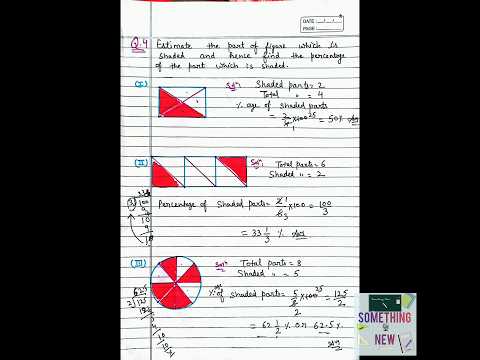 DATE
PAGE
Q.4 Estimate the part of figure which is
shaded and hence find the percentage
of the part which is shaded.
(I)
Solⁿ. Shaded parts = 2
Total " = 4
% age of shaded parts
= 2/4 × 100 25 = 50% Ans
1
(II)
Solⁿ. Total parts = 6
Shaded " = 2
Percentage of Shaded parts = 2 1/6 3 × 100 = 100/3
= 33 1/3 % Ans
33
3 100
9
10
9
1
(III)
Solⁿ. Total parts = 8
Shaded " = 5
% age of shaded parts = 5/8 2 × 100 25 = 125/2
= 62 1/2 % or 62.5% Ans
62.5
2 125
SOMETHING
NEW